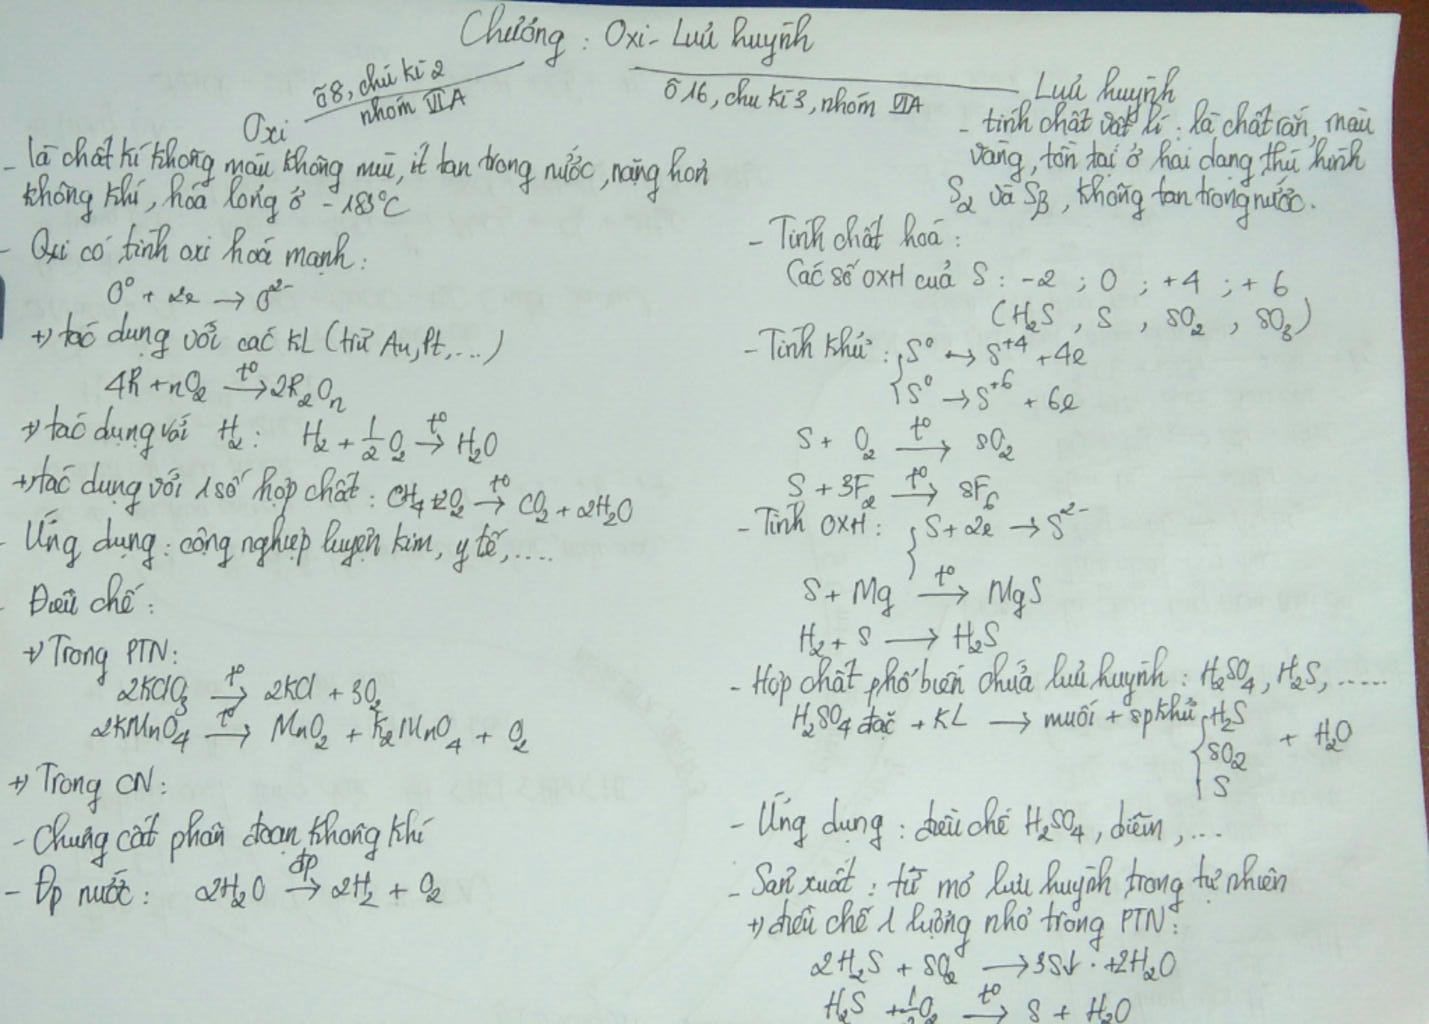 Chương : Oxi - Lưu huỳnh
ô 8, chu kì 2
nhóm VIA
Oxi
- là chất kí không màu không mùi, ít tan trong nước, nặng hơn
không khí, hóa lỏng ở -183°C
- Oxi có tính oxi hoá mạnh :
O⁰ + 2e → O²⁻
+) tác dụng với các KL (trừ Au, Pt, ...)
4R + nO₂ →(t⁰) 2R₂Oₙ
+) tác dụng với H₂ : H₂ + 1/2 O₂ →(t⁰) H₂O
+) tác dụng với 1 số hợp chất : CH₄ + 2O₂ →(t⁰) CO₂ + 2H₂O
- Ứng dụng : công nghiệp luyện kim, y tế, ....
- Điều chế :
+) Trong PTN :
2KClO₃ →(t⁰) 2KCl + 3O₂
2KMnO₄ →(t⁰) MnO₂ + K₂MnO₄ + O₂
+) Trong CN :
- Chưng cất phân đoạn không khí
- Đp nước : 2H₂O →(đp) 2H₂ + O₂
ô 16, chu kì 3, nhóm VIA
Lưu huỳnh
- tính chất vật lí : là chất rắn, màu
vàng, tồn tại ở hai dạng thù hình
Sα và Sβ, không tan trong nước.
- Tính chất hoá :
Các số OXH của S : -2 ; 0 ; +4 ; +6
(H₂S , S , SO₂ , SO₃)
- Tính khử : { S⁰ → S⁺⁴ + 4e
S⁰ → S⁺⁶ + 6e
S + O₂ →(t⁰) SO₂
S + 3F₂ →(t⁰) SF₆
- Tính OXH : { S + 2e → S²⁻
S + Mg →(t⁰) MgS
H₂ + S → H₂S
- Hợp chất phổ biến chứa lưu huỳnh : H₂SO₄, H₂S, .....
H₂SO₄ đặc + KL → muối + sp khử { H₂S
SO₂ + H₂O
S
- Ứng dụng : điều chế H₂SO₄, diêm, ...
- Sản xuất : từ mỏ lưu huỳnh trong tự nhiên
+) điều chế 1 lượng nhỏ trong PTN :
2H₂S + SO₂ → 3S↓ + 2H₂O
H₂S + 1/2 O₂ →(t⁰) S + H₂O